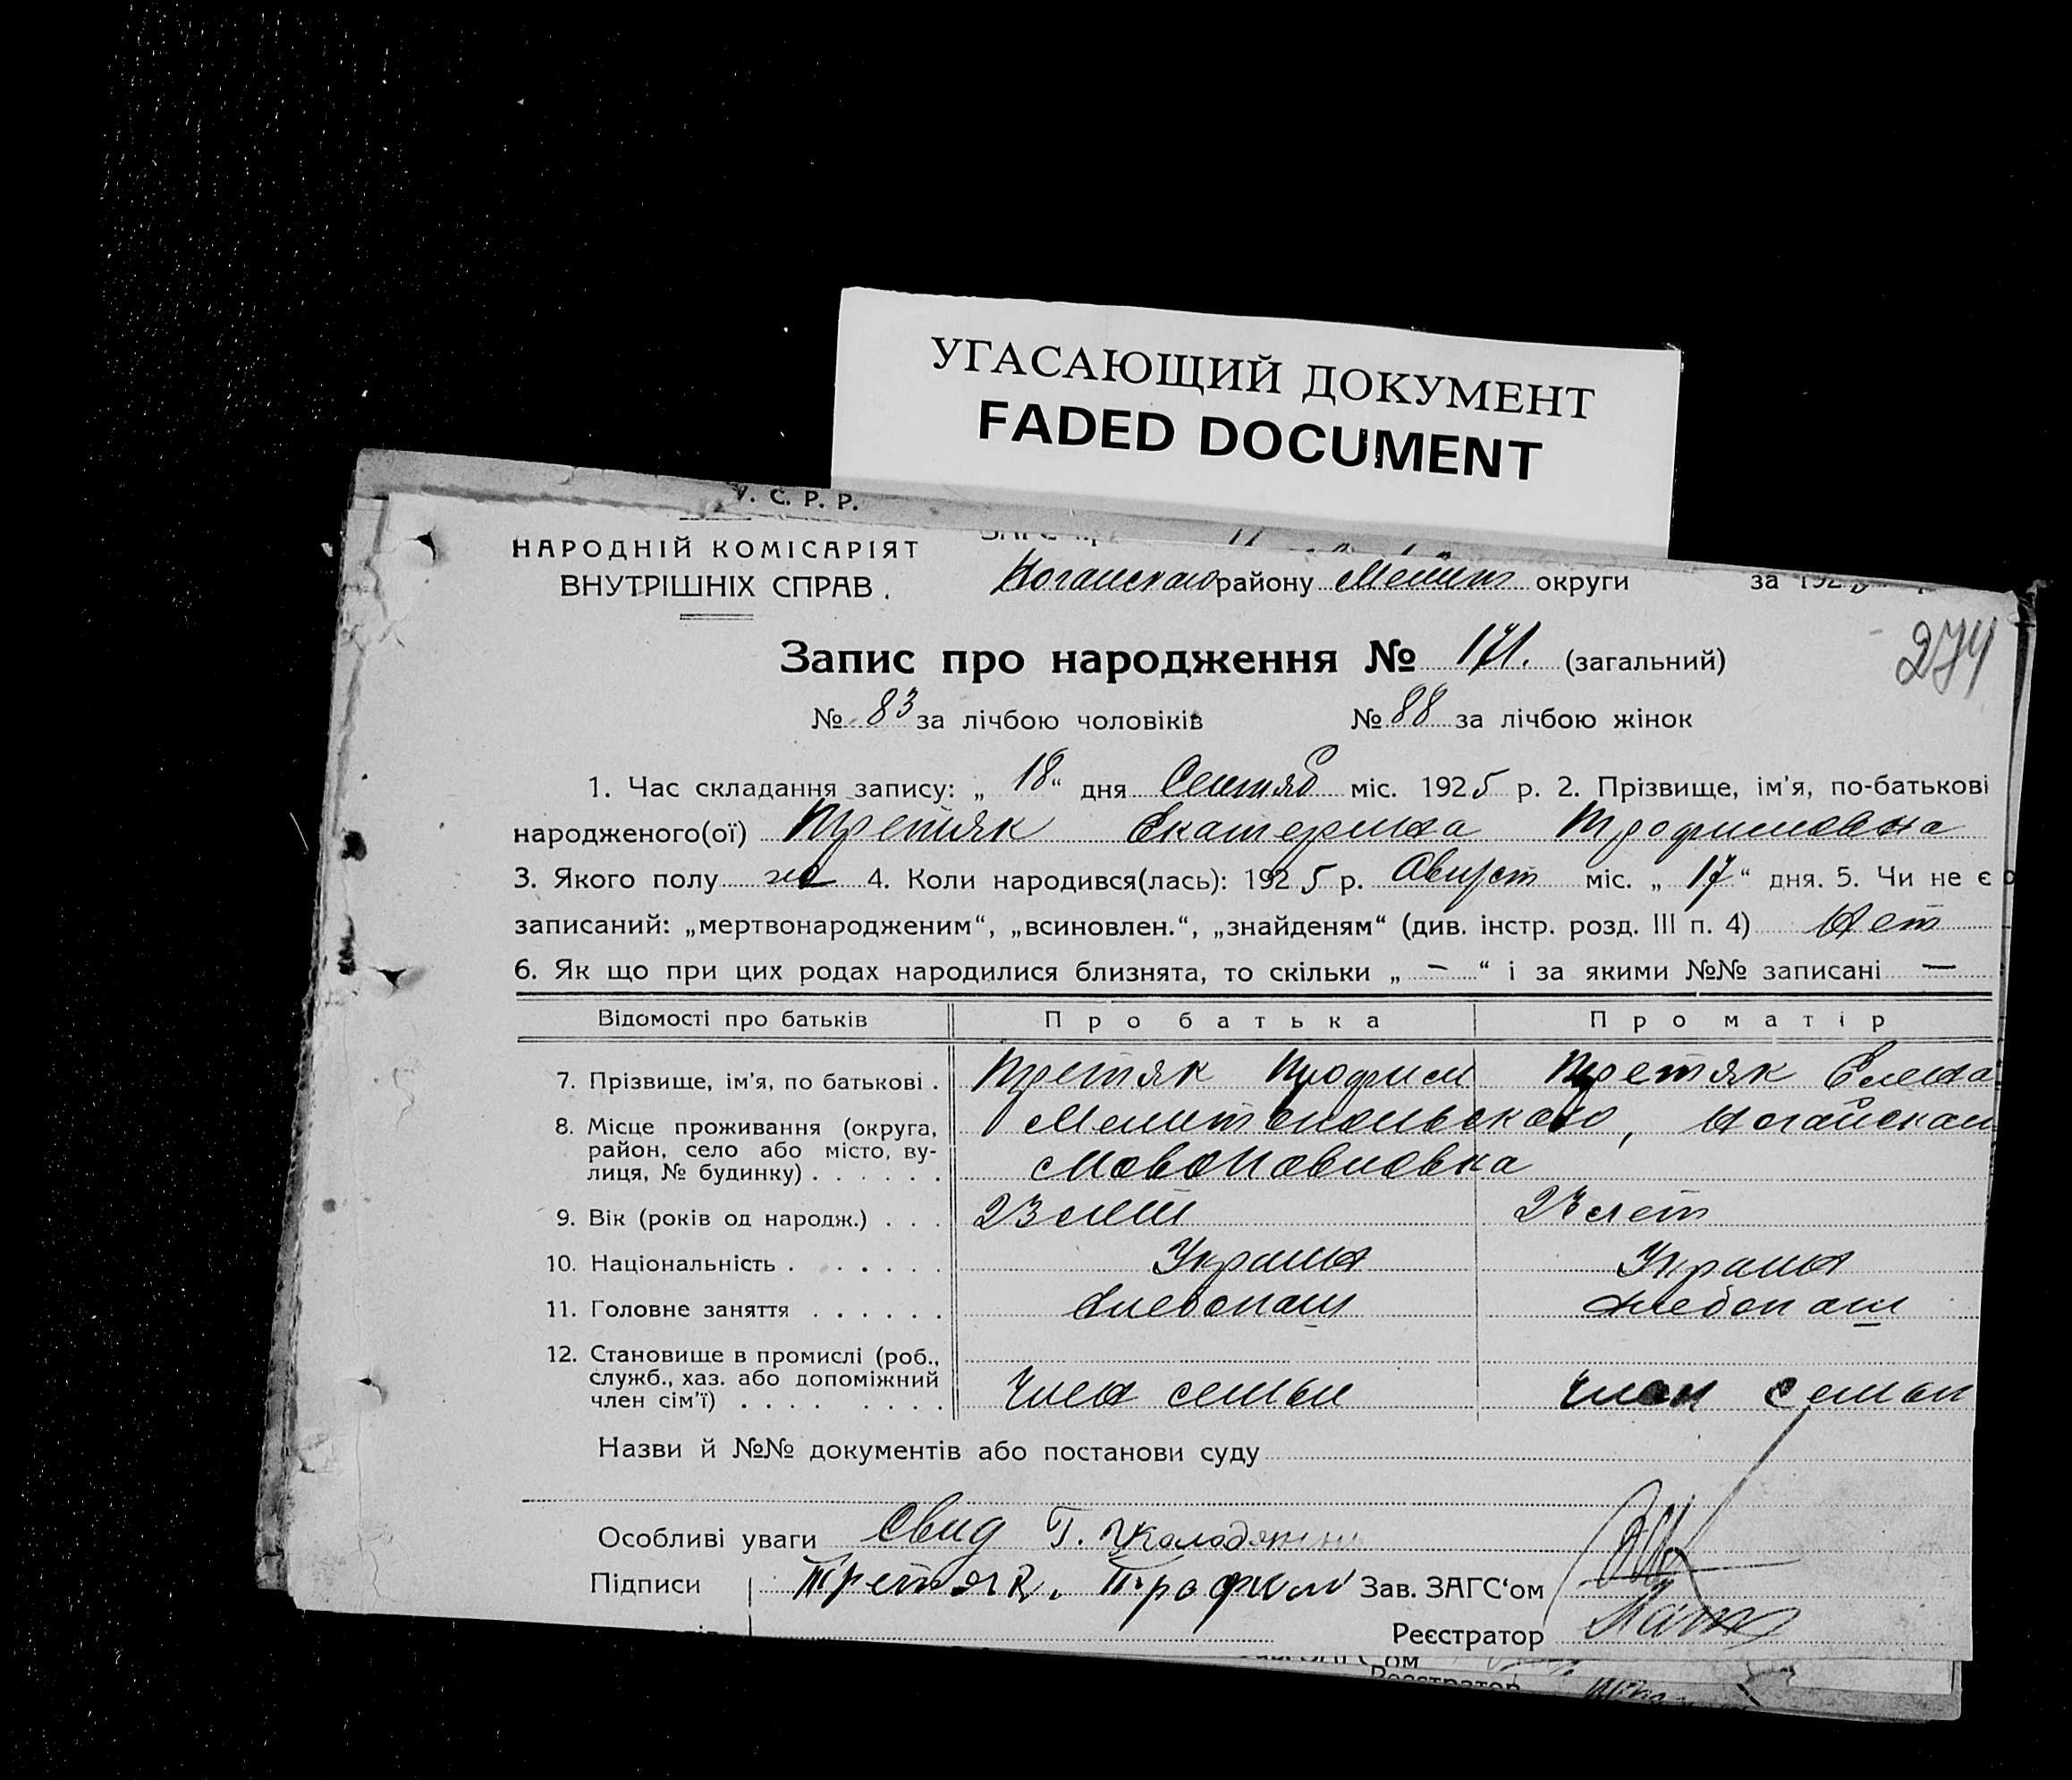 УГАСАЮЩИЙ ДОКУМЕНТ
FADED DOCUMENT
У. С. Р. Р.
НАРОДНІЙ КОМІСАРІЯТ
ВНУТРІШНІХ СПРАВ.
Ногайского району Мелит округи за 1925
274
Запис про народження № 171. (загальний)
№ 83 за лічбою чоловіків № 88 за лічбою жінок
1. Час складання запису: „18“ дня Сентяб міс. 1925 р. 2. Прізвище, ім'я, по-батькові
народженого(ої) Третяк Екатерина Трофимовна
3. Якого полу же 4. Коли народився(лась): 1925 р. Август міс. „17“ дня. 5. Чи не є
записаний: „мертвонародженим“, „всиновлен.“, „знайденям“ (див. інстр. розд. III п. 4) Нет
6. Як що при цих родах народилися близнята, то скільки „ — “ і за якими №№ записані —
Відомості про батьків Про батька Про матір
7. Прізвище, ім'я, по батькові . Третяк Трофим Третяк Елена
8. Місце проживання (округа, район, село або місто, вулиця, № будинку) . . . . . . Мелитопольского, Ногайском
Новопавловка
9. Вік (років од народж.) . . . 23 лет 23 лет
10. Національність . . . . . . . Украин Украин
11. Головне заняття . . . . . . Хлебопаш Хлебопаш
12. Становище в промислі (роб., служб., хаз. або допоміжний член сім'ї) . . . . . . . . Член семьи Член семьи
Назви й №№ документів або постанови суду
Особливі уваги Свид Г.
Підписи Третяк. Трофим Зав. ЗАГС'ом
Реєстратор
Реєстратор